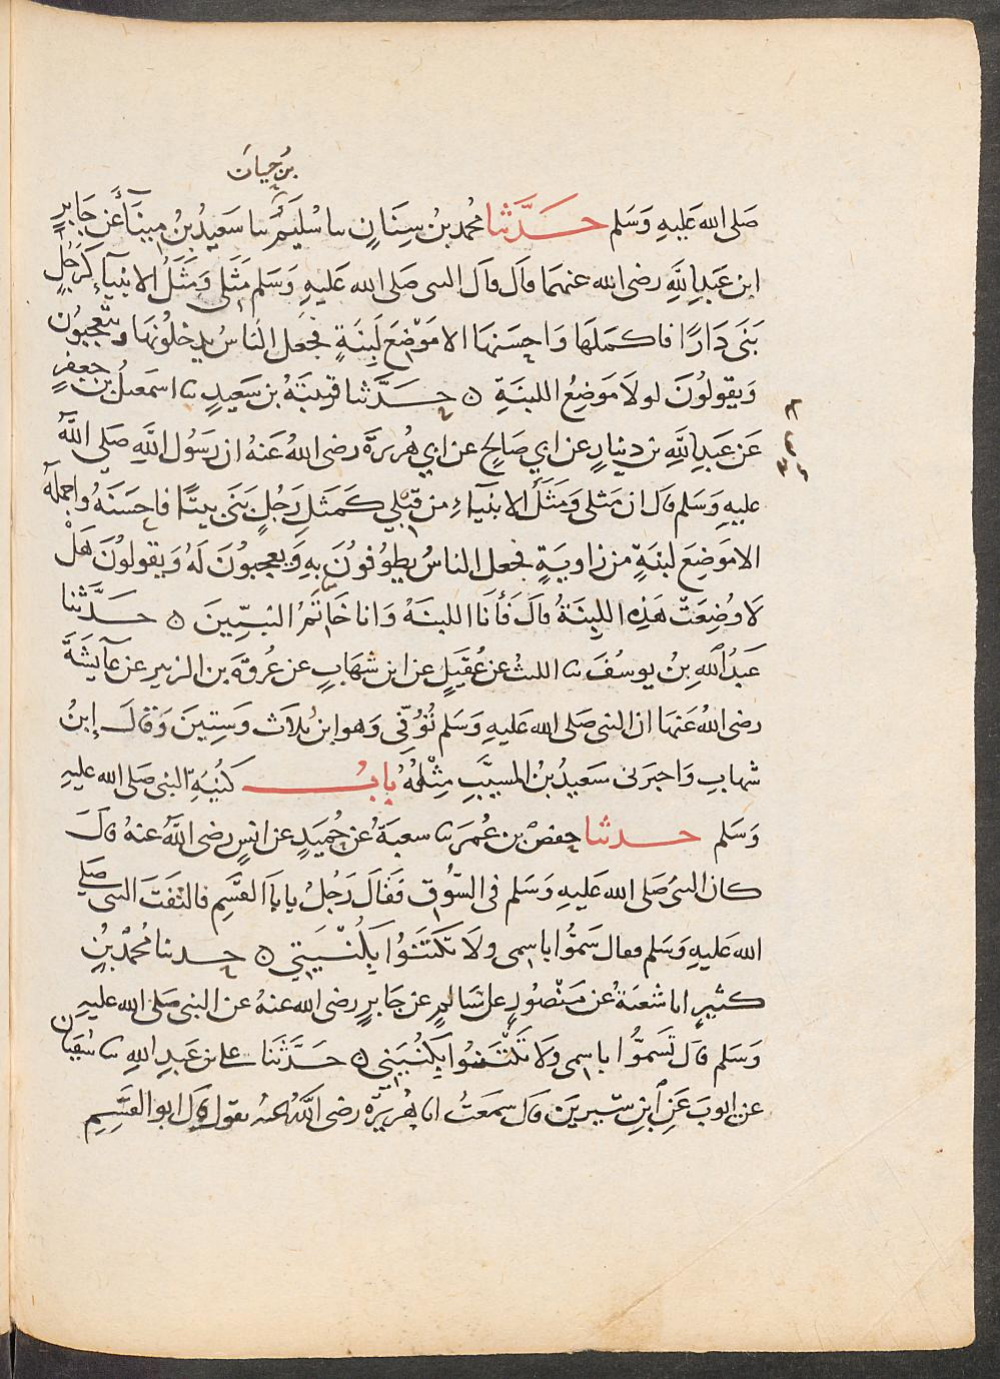 بن حيان
صَلى الله عَليهِ وَسَلم حَدَّثنا محُمد بنُ سِنَانٍ سا سُليَمُ سا سَعِيدُ بنُ مِينَآءَ عَن جَابرٍ
ابن عَبدِ اللَّهِ رضى الله عنهما قالَ قالَ النبى صَلى الله عَليهِ وَسَلم مَثَلى وَمَثَلُ الانبيآءِ كَرَجُلٍ
بَنَى دَارًا فاكمَلهَا وَاحسَنهَا الا مَوْضِعَ لَبِنَةٍ فجعل النَّاسُ يدخلُونهَا ويتَعجبُون
وَيقولُونَ لولَا مَوضِعُ اللبنَةِ ه حَدَّثنا قتيبَةُ بن سَعِيدٍ سا اسمَعيلُ بن جعفرٍ
عَن عَبدِ اللَّهِ بن دينارٍ عن ابي صَالِحٍ عن ابي هُريرَةَ رضى اللهُ عَنهُ ان رَسُول اللَّهِ صَلى اللَّهُ
عليهِ وَسَلم قالَ ان مَثلى وَمَثَلَ الانبيَاءِ من قَبْلي كَمَثَلِ رَجُلٍ بَنَى بيتًا فاحسَنَهُ واجملَهُ
الا مَوضِعَ لبنَةٍ من زاويَةٍ فجعل الناسُ يطوُفونَ بهِ وَيعجبونَ لَهُ وَيقولُونَ هَلْ
لَا وُضِعَتْ هَذِه اللبِنَةُ قالَ فَأنَا اللبنَةُ وَانا خَاتَمُ النبيّينَ ه حَدَّثنا
عَبدُ اللهِ بنُ يوسُفَ سا الليثُ عن عُقَيلٍ عن ابن شهَابٍ عن عُروَةَ بن الزبير عن عآيشَةَ
رضى اللهُ عَنهَا ان النبى صَلى الله عَليهِ وَسَلم تُوُفّي وَهو ابنُ ثلاَث وَستِينَ وَقالَ ابنُ
شهابٍ وَاخبرَنى سَعيدُ بنُ المسيَّبِ مِثْلَهُ بابُ كنُيَةِ النبى صَلى الله عليهِ
وَسَلم حدثنا حفصُ بن عُمرَ سا شعبَةُ عن حُمَيدٍ عن انسٍ رضى اللهُ عنهُ قالَ
كان النبىُ صَلى الله عَليهِ وَسَلم فى السّوُق فَقَالَ رَجُلٌ يا بآ القسِمِ فالتَفَتَ النبى صَلى
الله عَليهِ وَسَلم فقال سَموُّا باسمى ولَا تَكتَنوُا بِكُنْيَتِي ه حدثنا محُمد بنُ
كثيرٍ انا شعبَةُ عن مَنْصُورٍ عن سَالمٍ عن جَابرٍ رضى الله عنهُ عن النبى صَلى الله عليهِ
وَسَلم قالَ تَسموُّا باسمى وَلَا تَكتَنُوا بِكُنْيَتِي ه حَدَّثَنَا على بن عَبدِ اللهِ سا سُفيَان
عن ايوبَ عَنِ ابنِ سيرينَ قالَ سمعَتُ ابا هُريرَةَ رضى اللهُ عنهُ يقول قالَ ابو القَسِمِ